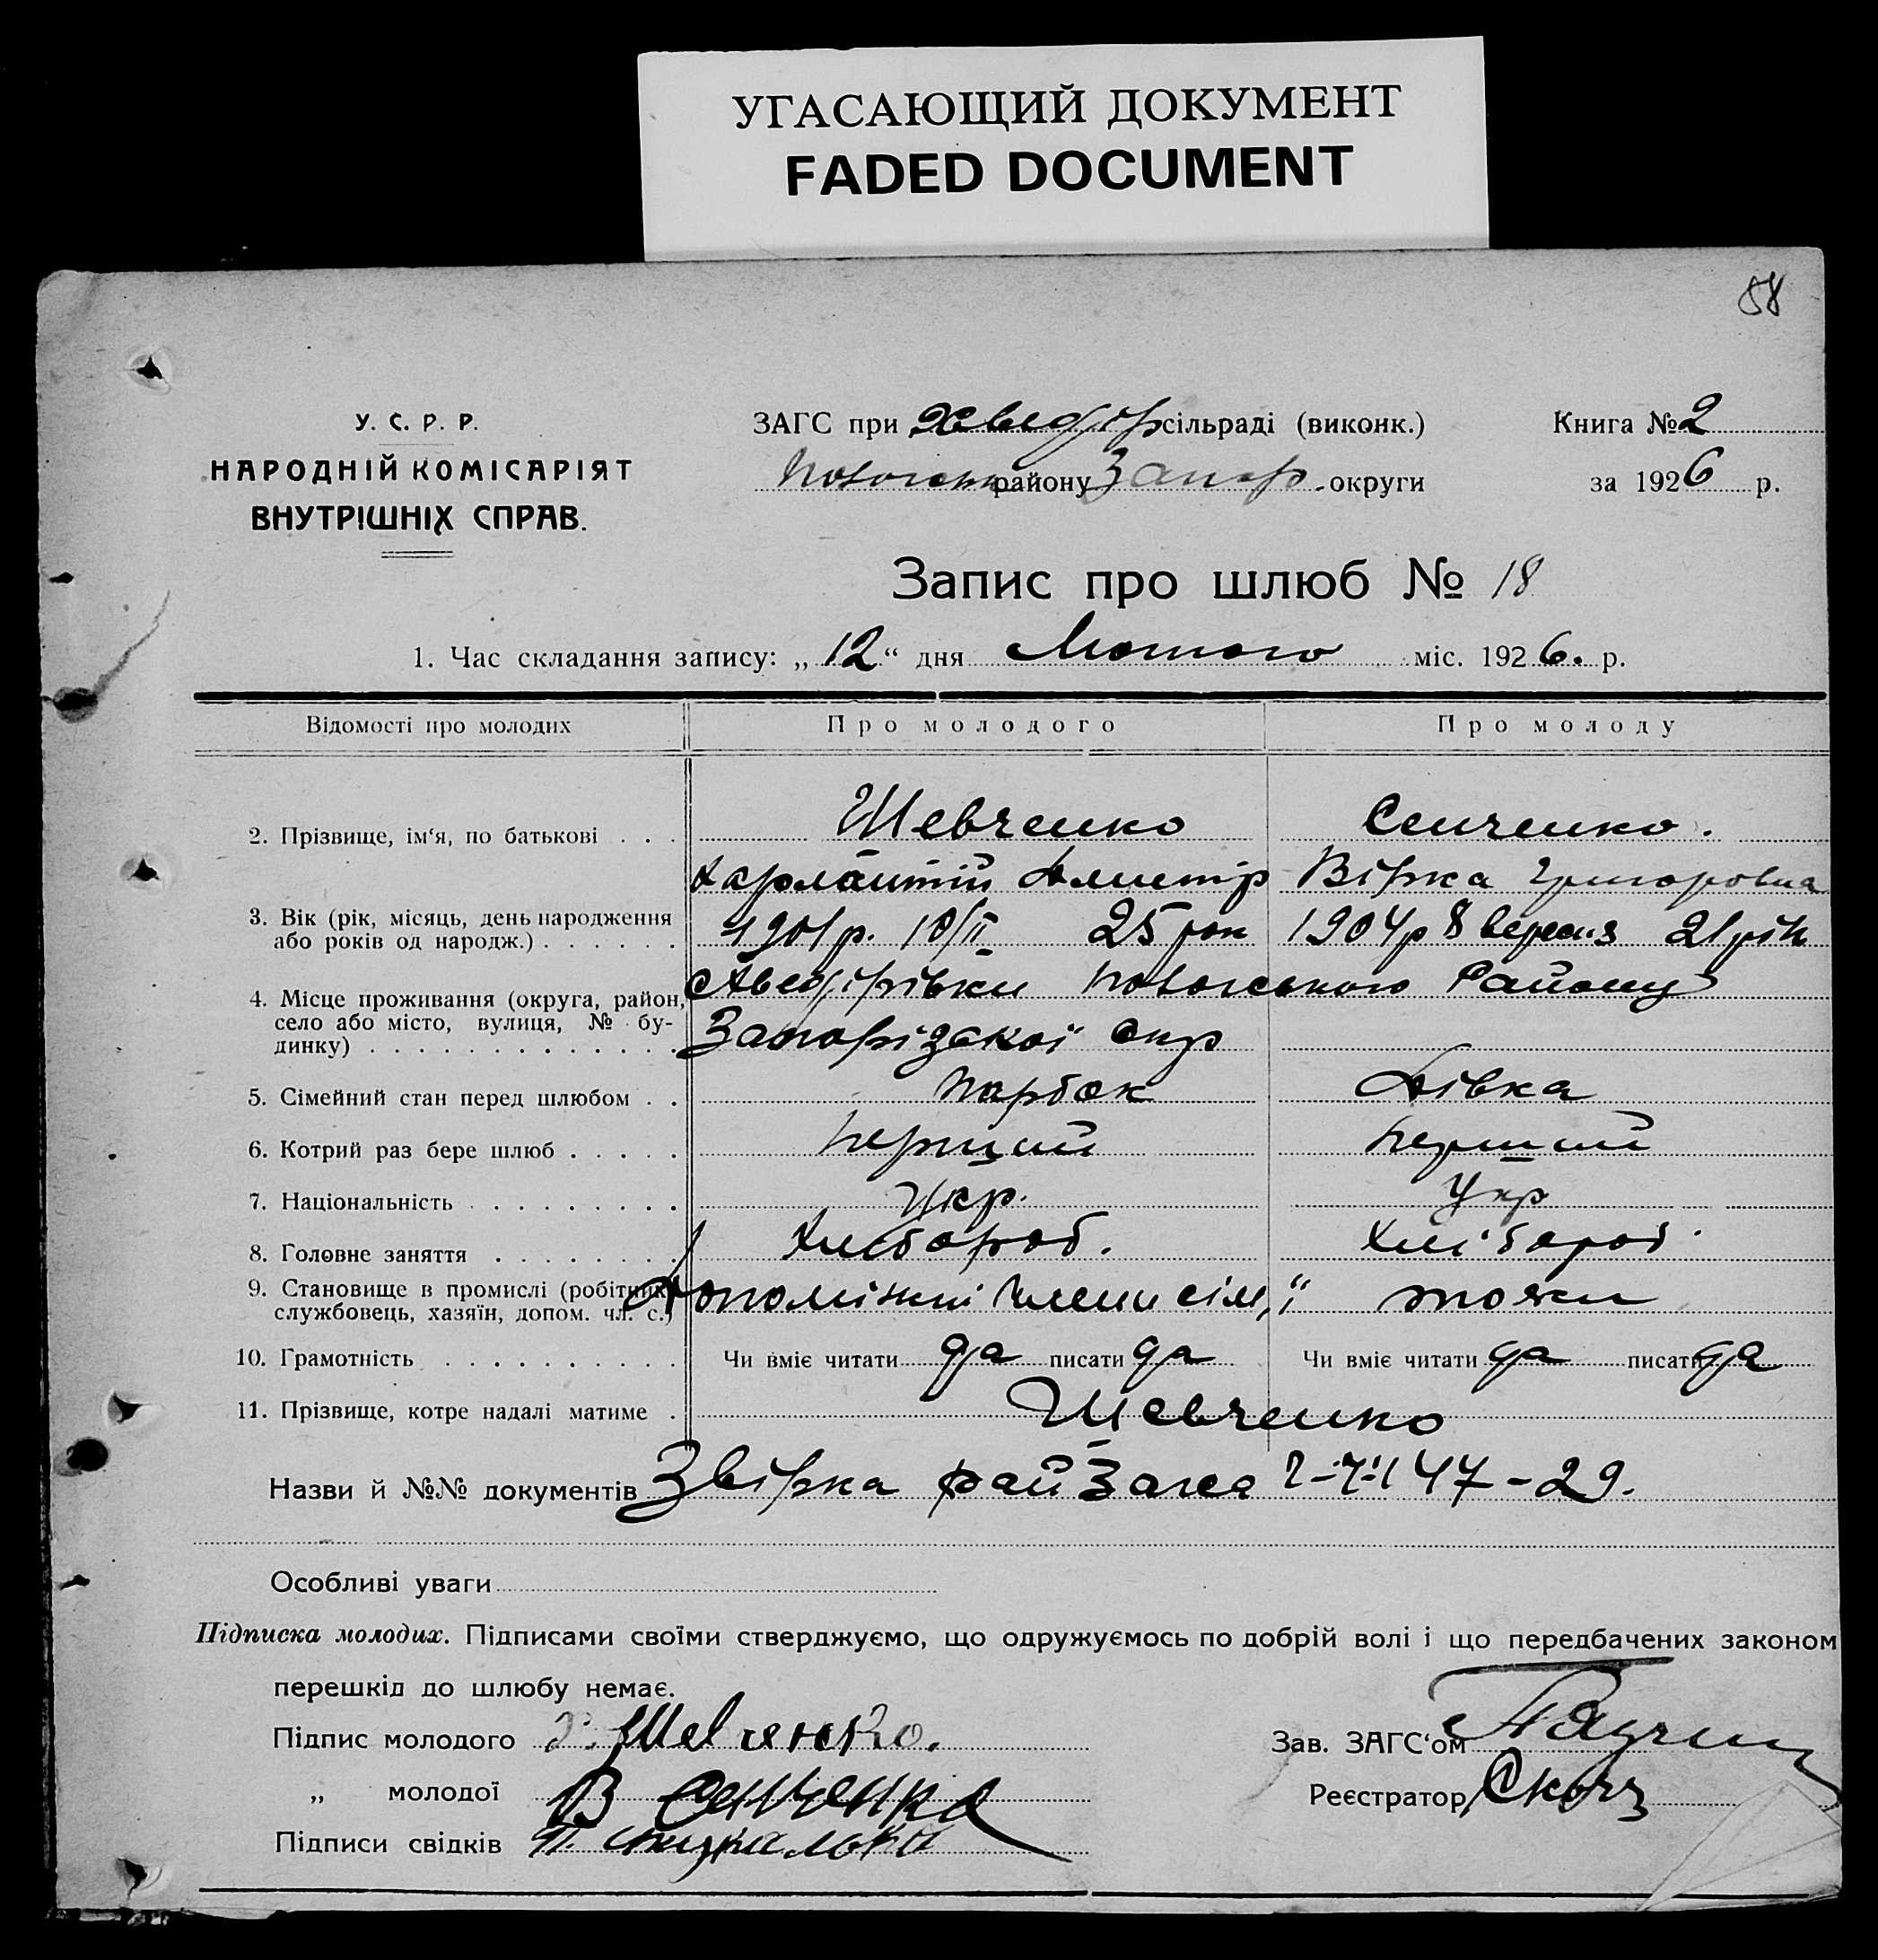 УГАСАЮЩИЙ ДОКУМЕНТ
FADED DOCUMENT
58
У. С. Р. Р.
НАРОДНІЙ КОМІСАРІЯТ
ВНУТРІШНІХ СПРАВ.
ЗАГС при Хведір сільраді (виконк.)
району Запор. округи
Книга № 2
за 1926 р.
Запис про шлюб № 18
1. Час складання запису: „12“ дня Лютого міс. 1926. р.
Відомості про молодих
Про молодого
Про молоду
2. Прізвище, ім‘я, по батькові . . .
Шевченко
Сенченко.
Харлантій Дмитр
Вірка Григоровна
3. Вік (рік, місяць, день народження
або років од народж.) . . . . . .
1901р. 10/II 25 рок
1904р 8 вересня 21 рік
4. Місце проживання (округа, район,
село або місто, вулиця, № бу-
динку) . . . . . . . . . . . . .
Хведірівки Районy
Запорізської Окр
5. Сімейний стан перед шлюбом . .
Парубок
Дівка
6. Котрий раз бере шлюб . . . . .
Перший
Перший
7. Національність . . . . . . . . .
Укр.
Укр
8. Головне заняття . . . . . . . .
Хлібороб.
Хлібороб.
9. Становище в промислі (робітник,
службовець, хазяїн, допом. чл. с.)
Допоміжний член сім,ї
тож
10. Грамотність . . . . . . . . . .
Чи вміє читати да писати да
Чи вміє читати да писати да
11. Прізвище, котре надалі матиме .
Шевченко
Назви й №№ документів Звірка райЗагса 47-29.
Особливі уваги
Підписка молодих. Підписами своїми стверджуємо, що одружуємось по добрій волі і що передбачених законом
перешкід до шлюбу немає.
Підпис молодого Х. Шевченко.
„ молодої В Сенченко
Підписи свідків
Зав. ЗАГС‘ом
Реєстратор